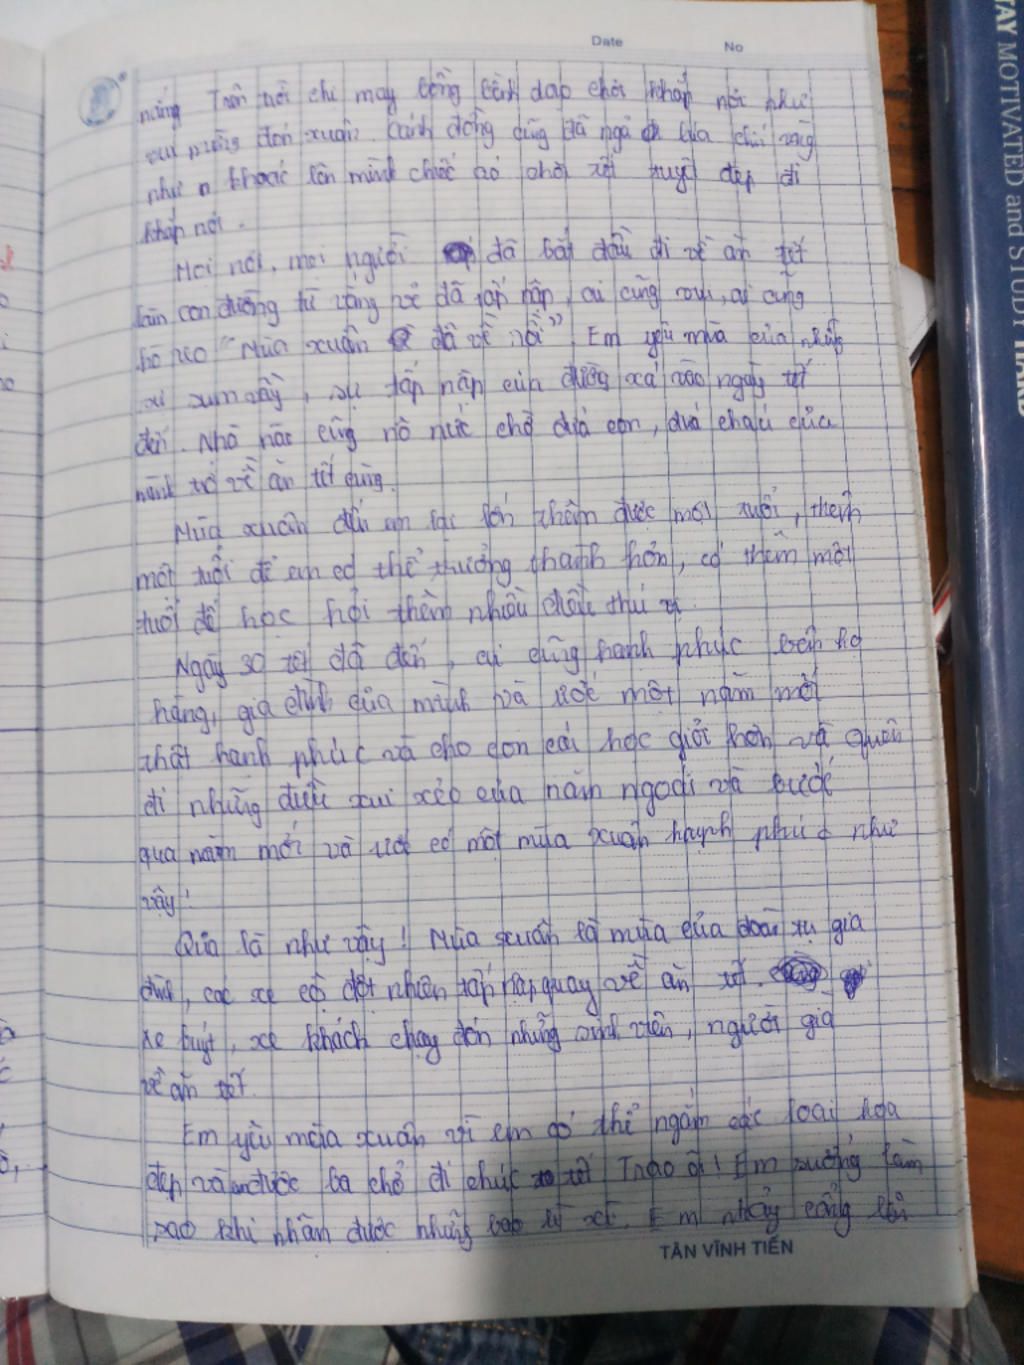 Date No
nắng Trên trời chị mây bồng bềnh dạo chơi khắp nơi như
vui mừng đón xuân. Cánh đồng cũng đã ngả lúa chín vàng
như khoác lên mình chiếc áo mới tuyệt đẹp đi
khắp nơi.
Mọi nơi, mọi người đã bắt đầu đi về ăn tết
trên con đường từ vắng vẻ đã tấp nập, ai cũng vui, ai cũng
hò reo "Mùa xuân đã về rồi" Em yêu mùa của những
sự sum vầy, sự tấp nập của đường xá vào ngày tết
đến. Nhà nào cũng nô nức chờ đứa con, đứa cháu của
mình trở về ăn tết cùng.
Mùa xuân đến em lại lớn thêm được một tuổi, thêm
một tuổi để em có thể trưởng thành hơn, có thêm một
tuổi để học hỏi thêm nhiều điều thú vị.
Ngày 30 tết đã đến, ai cũng hạnh phúc bên họ
hàng, gia đình của mình và ước một năm mới
thật hạnh phúc và cho con cái học giỏi hơn và quên
đi những điều xui xẻo của năm ngoái và bước
qua năm mới và ước có một mùa xuân hạnh phúc như
vậy!
Qủa là như vậy! Mùa xuân là mùa của đoàn tụ gia
đình, các xe cộ đột nhiên tấp nập quay về ăn tết.
xe buýt, xe khách chạy đón những sinh viên, người già
về ăn tết.
Em yêu mùa xuân vì em có thể ngắm các loại hoa
đẹp và được ba chở đi chúc tết Trao ôi! Em sướng làm
sao khi nhận được những bao lì xì. Em nhảy cẫng lên
TÂN VĨNH TIẾN
TAY MOTIVATED and STUDY HARD